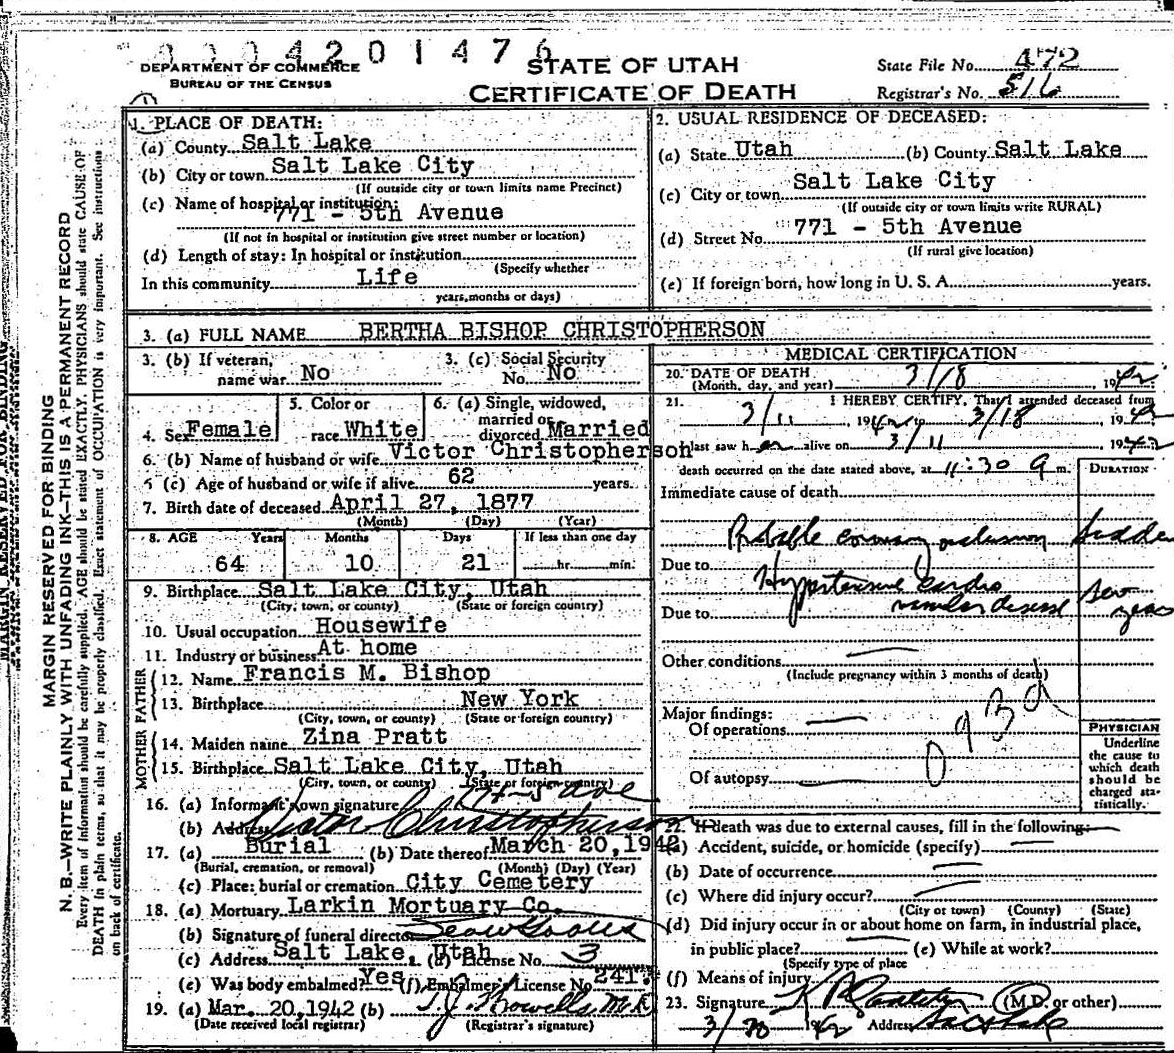 0004201476
DEPARTMENT OF COMMERCE
BUREAU OF THE CENSUS
STATE OF UTAH
CERTIFICATE OF DEATH
State File No. 472
Registrar's No. 516
MARGIN RESERVED FOR BINDING
N. B.—WRITE PLAINLY WITH UNFADING INK—THIS IS A PERMANENT RECORD
Every item of information should be carefully supplied. AGE should be stated EXACTLY. PHYSICIANS should state CAUSE OF
DEATH in plain terms, so that it may be properly classified. Exact statement of OCCUPATION is very important. See instructions
on back of certificate.
1. PLACE OF DEATH:
(a) County Salt Lake
(b) City or town Salt Lake City
(If outside city or town limits name Precinct)
(c) Name of hospital or institution:
771 - 5th Avenue
(If not in hospital or institution give street number or location)
(d) Length of stay: In hospital or institution
(Specify whether
In this community Life
years, months or days)
2. USUAL RESIDENCE OF DECEASED:
(a) State Utah (b) County Salt Lake
(c) City or town Salt Lake City
(If outside city or town limits write RURAL)
(d) Street No. 771 - 5th Avenue
(If rural give location)
(e) If foreign born, how long in U. S. A. years.
3. (a) FULL NAME BERTHA BISHOP CHRISTOPHERSON
3. (b) If veteran, name war No
3. (c) Social Security No. No
4. Sex Female
5. Color or race White
6. (a) Single, widowed, married or divorced Married
6. (b) Name of husband or wife Victor Christopherson
6 (c) Age of husband or wife if alive 62 years.
7. Birth date of deceased April 27, 1877
(Month) (Day) (Year)
8. AGE Years Months Days If less than one day
64 10 21 hr. min.
9. Birthplace Salt Lake City, Utah
(City, town, or county) (State or foreign country)
10. Usual occupation Housewife
11. Industry or business At home
FATHER
12. Name Francis M. Bishop
13. Birthplace New York
(City, town, or county) (State or foreign country)
MOTHER
14. Maiden name Zina Pratt
15. Birthplace Salt Lake City, Utah
(City, town, or county) (State or foreign country)
16. (a) Informant's own signature Victor Christopherson
(b) Address
17. (a) Burial (b) Date thereof March 20, 1942
(Burial, cremation, or removal) (Month) (Day) (Year)
(c) Place: burial or cremation City Cemetery
18. (a) Mortuary Larkin Mortuary Co.
(b) Signature of funeral director
(c) Address Salt Lake, Utah (d) License No. 3
(e) Was body embalmed? Yes (f) Embalmer's License No. 241
19. (a) Mar. 20, 1942 (b) M.D.
(Date received local registrar) (Registrar's signature)
MEDICAL CERTIFICATION
20. DATE OF DEATH
(Month, day, and year) 3/18, 1942
21. I HEREBY CERTIFY, That I attended deceased from
3/11, 1942 to 3/18, 1942
I last saw her alive on 3/11 1942
death occurred on the date stated above, at 11:30 m.
DURATION
Immediate cause of death
Probable coronary occlusion sudden
Due to Hypertensive cardio
Due to vascular disease
Other conditions
(Include pregnancy within 3 months of death)
Major findings:
Of operations
Of autopsy
PHYSICIAN
Underline
the cause to
which death
should be
charged sta-
tistically.
22. If death was due to external causes, fill in the following:
(a) Accident, suicide, or homicide (specify)
(b) Date of occurrence
(c) Where did injury occur?
(City or town) (County) (State)
(d) Did injury occur in or about home on farm, in industrial place,
in public place? (e) While at work?
(Specify type of place
(f) Means of injury
23. Signature (M.D. or other)
3/20 1942 Address